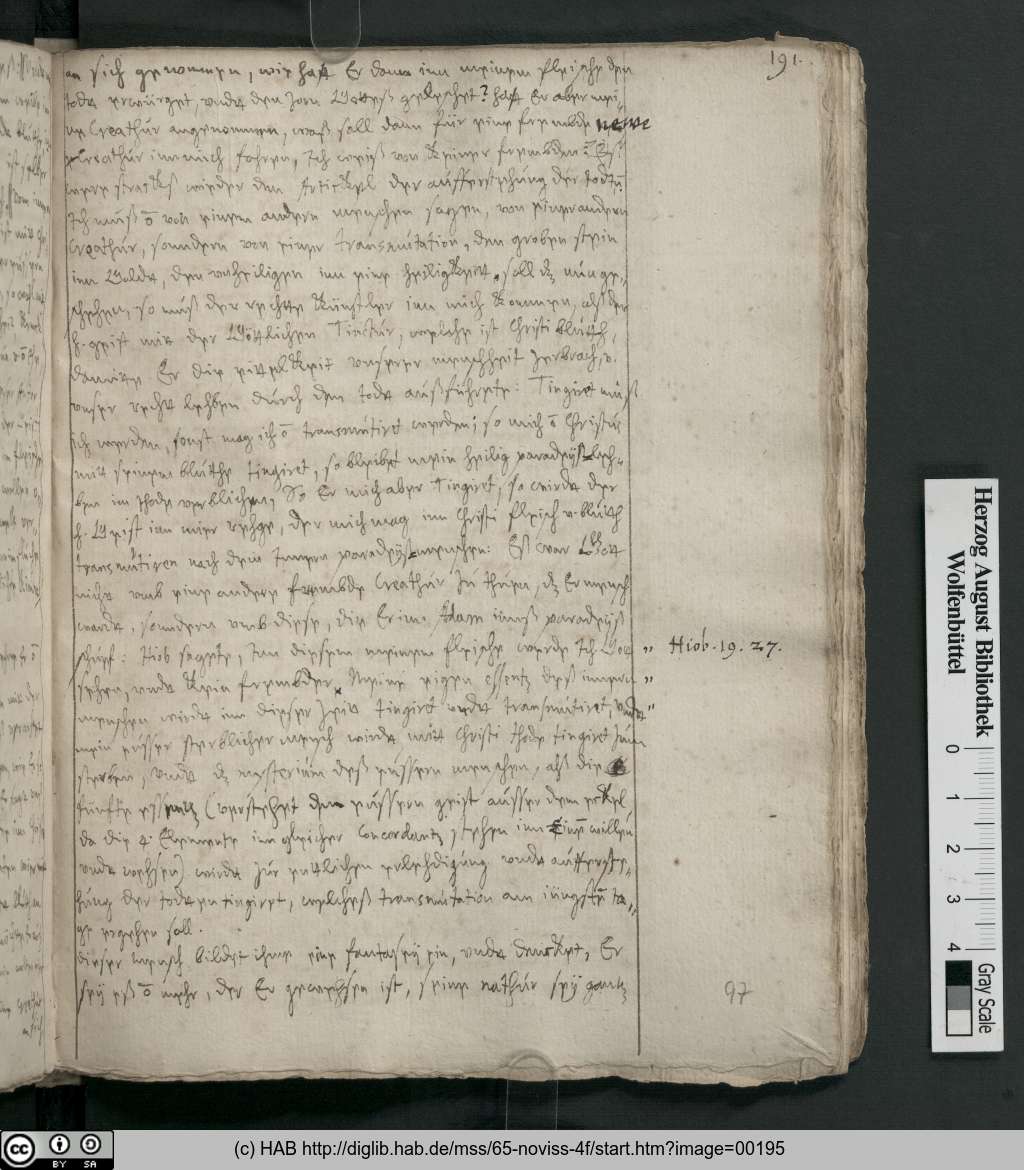 191.
an sich genommen, wie hatt Er dann inn meinem fleische den
todt erwürget, undt den Zorn Gottes geleschet? hatt Er aber mei¬
ne Creathur angenommen, waß soll dann für eine frembde newe
Creathur inn mich fahren, Ich weiß von keiner frembden: Es
were stracks wieder den Artickel der aufferstehung der todtē
Ich muß ō von einem andern menschen sagen, von einer andern
Creathur, sonndern von einer transmutation, den groben stein
inn Goldt, den unheiligen inn eine heiligkeitt, soll dz nun ge¬
schehen, so muß der rechte Künstler inn mich kommen, alß der
h. geist mit der Göttlichen Tinctur, welche ist Christi bluth,
damitte Er die eittelkeit unserer menschheit zerbrach, v.
unser recht lehben durch den todt außführete: Tingiret muß
ich werden, sonst mag ich ō transmutiret werden; so mich ō Christus
mitt seinem bluthe tingiret, so bleibet mein heilig paradyß leh¬
ben im thode verblichen, So Er mich aber Tingiret, so wirdt der
h. Geist inn mier rehge, der mich mag inn Christi fleisch v. bluth
transmutiren nach dem innern paradyß menschen: Eß war Gott
nicht umb eine andere frembde Creathur zu thuen, dz Er mensch
wardt, sonndern umb diese, die Er inn Adam inns paradyß
schuf: Hiob sagete, Inn diesem meinem fleische werde Ich Gott "
sehen, undt kein frembder. Meine eigen essentz deß innern "
menschen wirdt inn dieser zeit tingiret undt transmutiret, undt "
mein eusser sterblicher mensch wirdt mitt Christi thode tingiret zum
sterben, undt dz mysterium deß eussern menschen, alß die
fünfte essentz (verstehet den eussern geist ausser dem eckel
da die 4. Elemente inn gleicher Concordantz stehen inn Einē willen
undt wehsen) wirdt zur entlichen erlehdigung undt aufferste¬
hung der todten tingiret, welcheß transmutation am iüngstē ta¬
ge geschehen soll.
dieser mensch bildet ihme eine fantasey ein, undt dencket, Er
sey eß ō mehr, der Er gewehsen ist, seine nathur sey gantz
Hiob. 19. 27.
97
Herzog August Bibliothek
Wolfenbüttel
0 1 2 3 4
Gray Scale
cc BY SA
(c) HAB http://diglib.hab.de/mss/65-noviss-4f/start.htm?image=00195